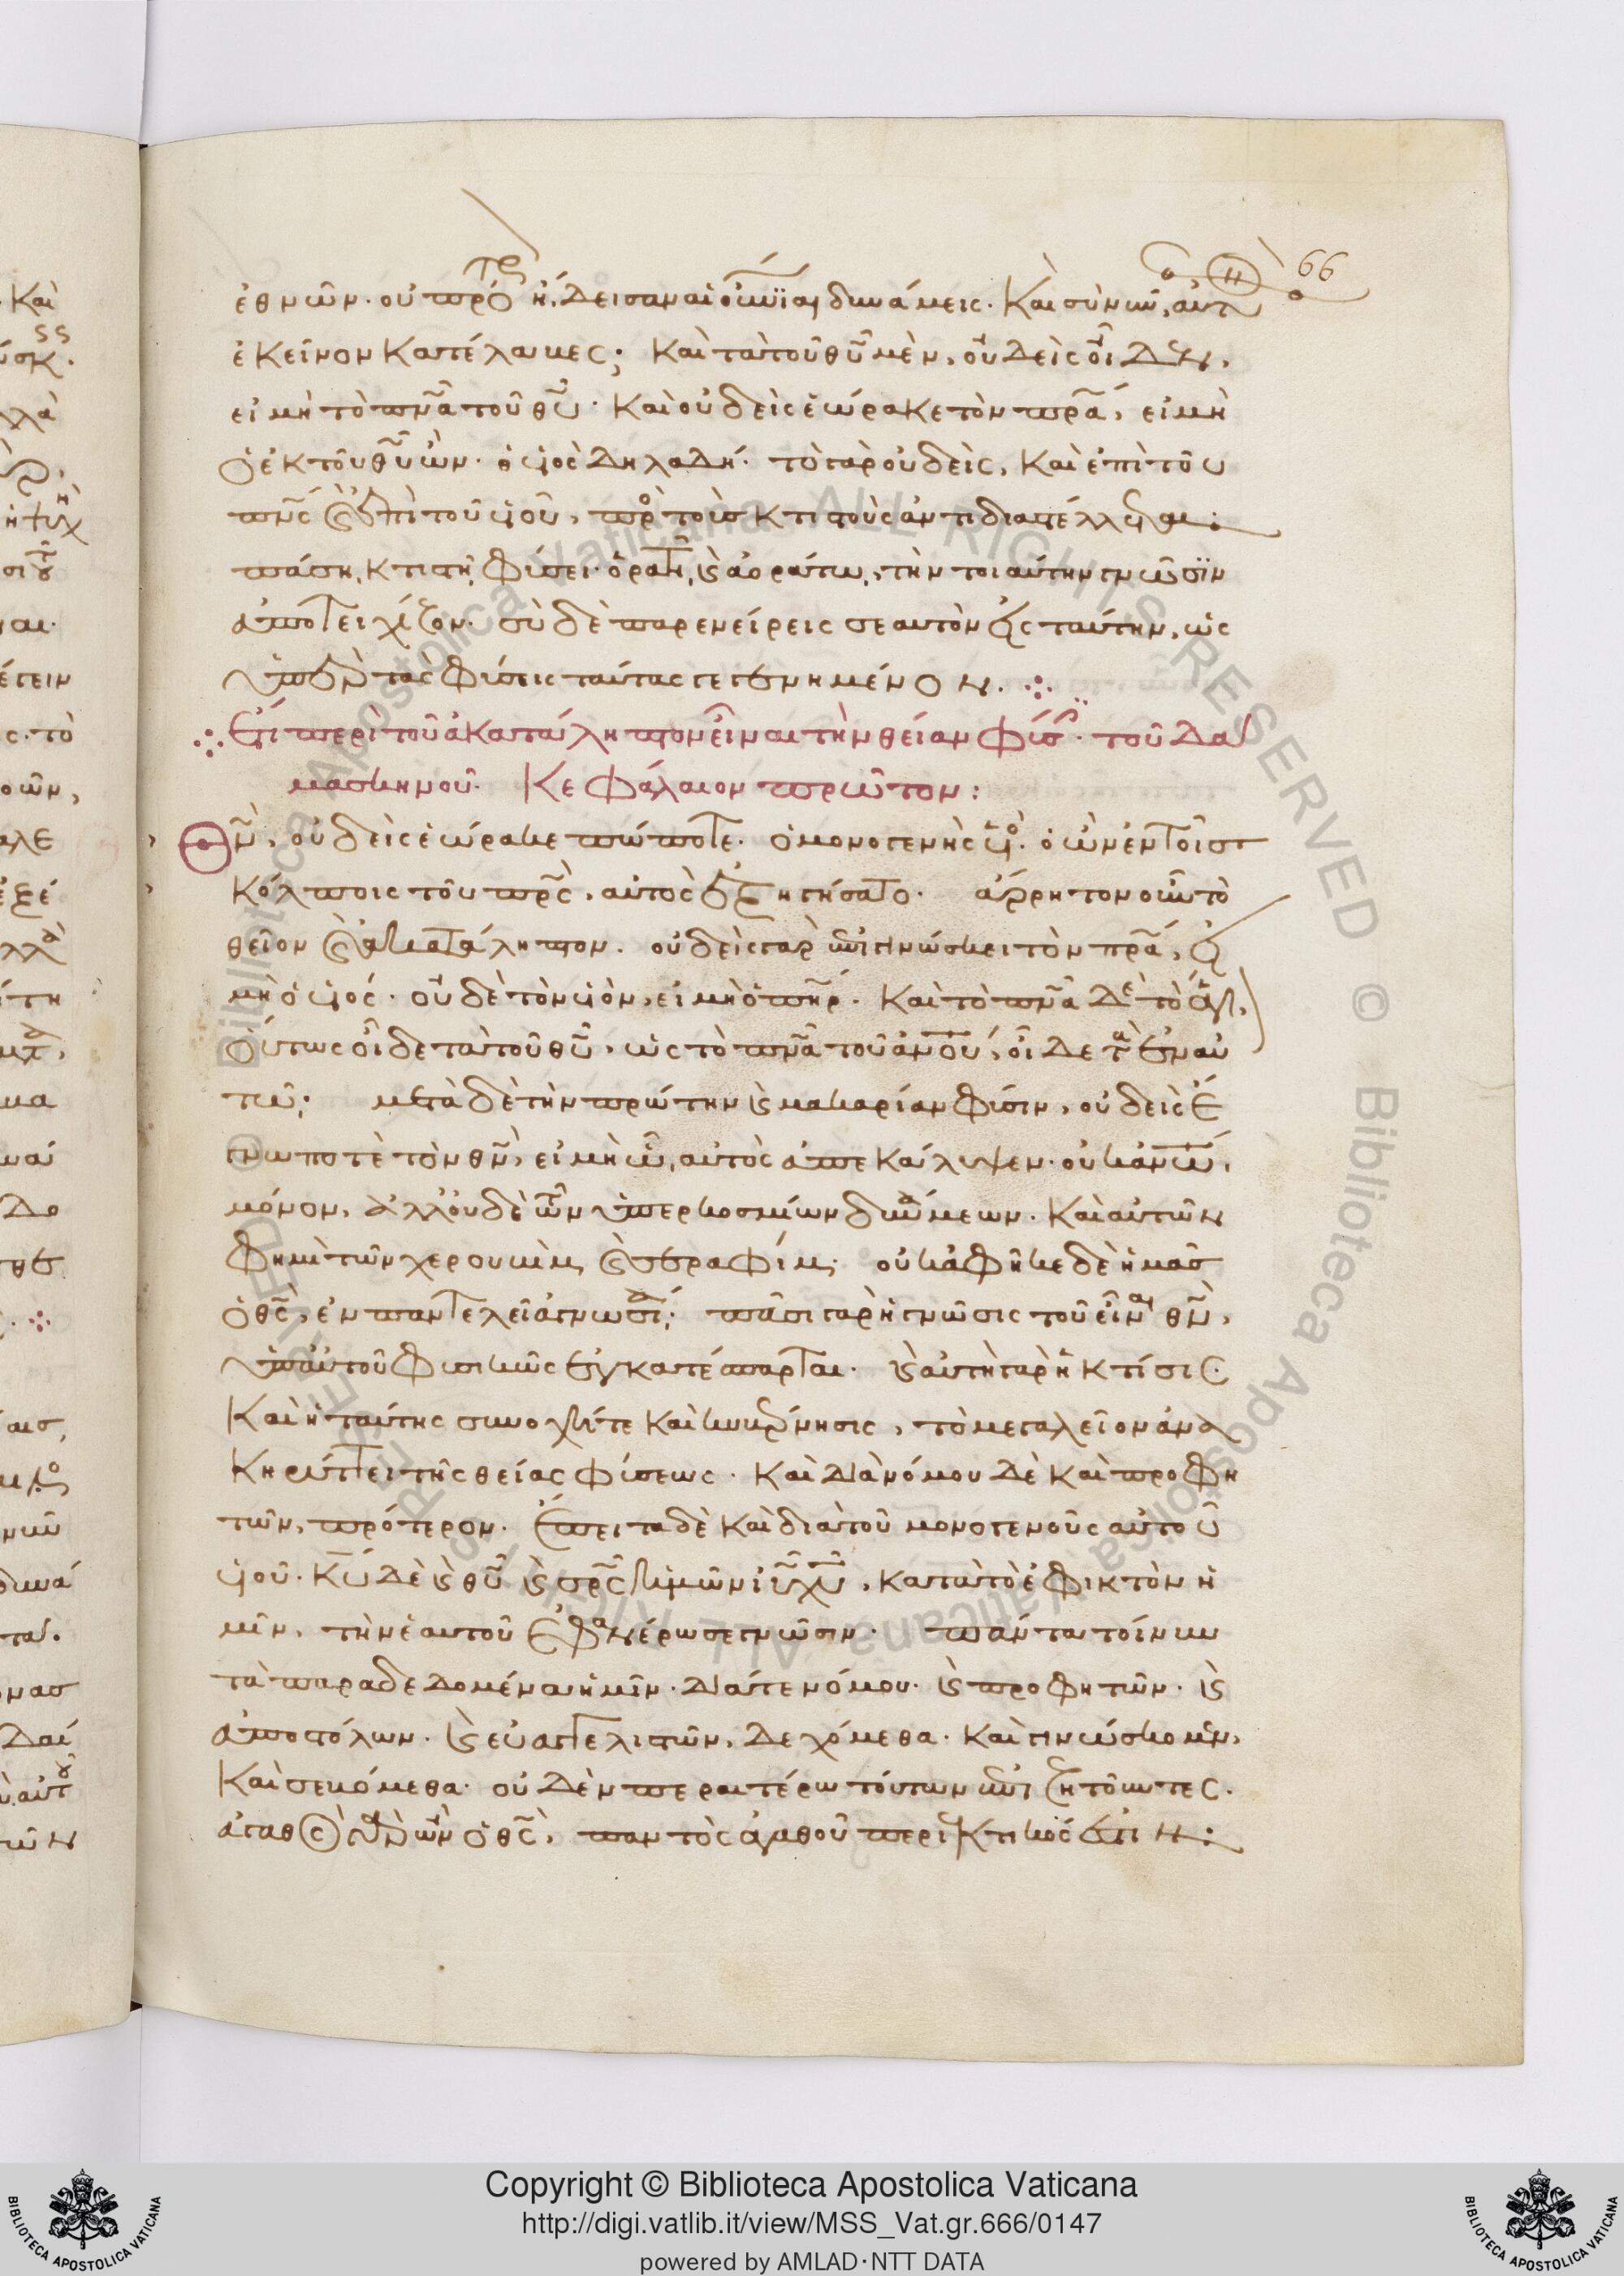 66
ἐθνῶν. οὐ πρότερον ᾔδεισαν αἱ οὐράνιαι δυνάμεις. Καὶ σὺ νῦν, αὐτὸ
ἐκεῖνον κατέλαβες; Καὶ τὰ τοῦ θυ μὲν, οὐδεὶς οἶδεν,
εἰ μὴ τὸ πνα τοῦ θυ. Καὶ οὐδεὶς ἑώρακε τὸν πρα, εἰ μὴ
ὁ ἐκ τοῦ θυ ὤν. ὁ υἱὸς δηλαδή. τὸ γὰρ οὐδεὶς, καὶ ἐπὶ τοῦ
πνς καὶ ἐπὶ τοῦ υἱοῦ, πρὸς τοὺς κτιστοὺς ἀντιδιαστέλλεται:
πάσῃ κτιστῇ φύσει ὁρατῇ καὶ ἀοράτῳ, τὴν τοιαύτην γνῶσιν
ἀποτειχίζον. σὺ δὲ παρενείρεις σεαυτὸν εἰς ταύτην, ὡς
ὑπὲρ τὰς φύσεις ταύτας γεγενημένον.
Ἔτι περὶ τοῦ ἀκατάληπτον εἶναι τὴν θείαν φύσιν. τοῦ Δα
μασκηνοῦ. Κεφάλαιον πρῶτον:
Θν, οὐδεὶς ἑώρακε πώποτε. ὁ μονογενὴς υἱός. ὁ ὢν ἐν τοῖς
κόλποις τοῦ πρς, αὐτὸς ἐξηγήσατο. ἄρρητον οὖν τὸ
θεῖον καὶ ἀκατάληπτον. οὐδεὶς γὰρ ἐπιγινώσκει τὸν πρα, εἰ
μὴ ὁ υἱός. οὐδὲ τὸν υἱὸν, εἰ μὴ ὁ πηρ. Καὶ τὸ πνα δὲ τὸ ἅγι,
οὕτως οἶδε τὰ τοῦ θυ, ὡς τὸ πνα τοῦ ανου, οἶδε τὰ ἐν αὐ
τῷ: μετὰ δὲ τὴν πρώτην καὶ μακαρίαν φύσιν, οὐδεὶς ἔ
γνω ποτὲ τὸν θν, εἰ μὴ ᾧ αὐτὸς ἀπεκάλυψεν. οὐκ ανων
μόνον, ἀλλ' οὐδὲ τῶν ὑπερκοσμίων δυνάμεων. Καὶ αὐτῶν
φημὶ τῶν χερουβὶμ καὶ σεραφίμ: οὐκ ἀφῆκε δὲ ἡμᾶς
ὁ θς, ἐν παντελεῖ ἀγνωσίᾳ: πᾶσι γὰρ ἡ γνῶσις τοῦ εἶναι θν,
ὑπ' αὐτοῦ φυσικῶς ἐγκατέσπαρται. καὶ αὐτὴ γὰρ ἡ κτίσις.
Καὶ ἡ ταύτης συνοχή τε καὶ κυβέρνησις, τὸ μεγαλεῖον ἀνα
κηρύττει τῆς θείας φύσεως. Καὶ διὰ νόμου δὲ καὶ προφη
τῶν, πρότερον. ἔπειτα δὲ καὶ διὰ τοῦ μονογενοῦς αὐτοῦ
υἱοῦ. Κυ δὲ καὶ θυ καὶ σρς ἡμῶν ιυ χυ, κατὰ τὸ ἐφικτὸν ἡ
μῖν, τὴν ἑαυτοῦ ἐφανέρωσε γνῶσιν. πάντα τοίνυν
τὰ παραδεδομένα ἡμῖν. διά τε νόμου. καὶ προφητῶν. καὶ
ἀποστόλων. καὶ εὐαγγελιστῶν, δεχόμεθα. Καὶ γινώσκομεν,
Καὶ σεβόμεθα. οὐδὲν περαιτέρω τούτων ἐπιζητοῦντες.
ἀγαθὸς γὰρ ὢν ὁ θς, παντὸς ἀγαθοῦ περικτικός ἐστιν:
Copyright © Biblioteca Apostolica Vaticana
http://digi.vatlib.it/view/MSS_Vat.gr.666/0147
powered by AMLAD·NTT DATA
BIBLIOTECA APOSTOLICA VATICANA
BIBLIOTECA APOSTOLICA VATICANA